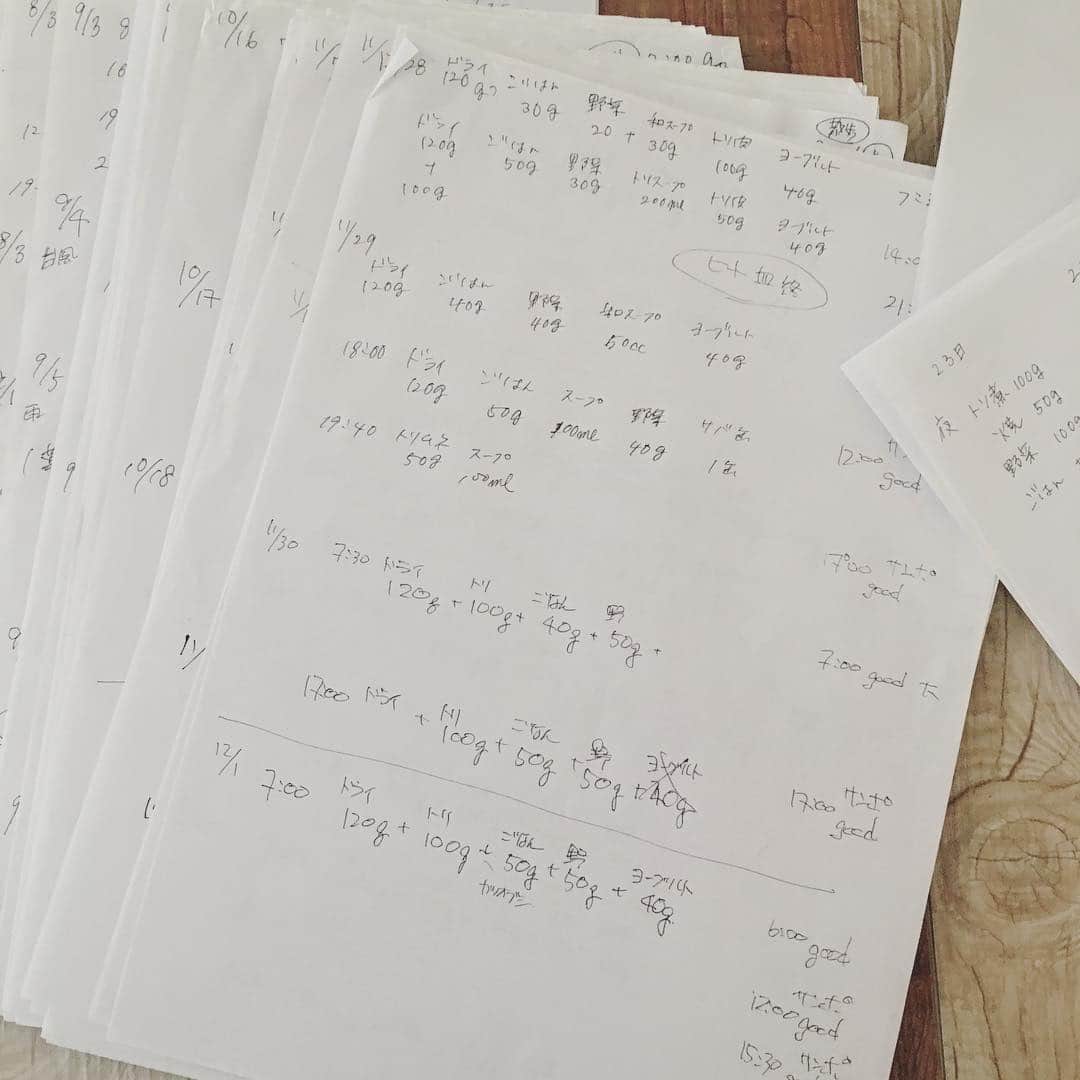 8/3
9/3
8
10
12
19
2
19
9/4
8/3
台風
9/5
雨
9
9
9
10/16
10/17
10/18
11/
28 ドライ ごはん 野菜 和スープ トリ皮 ヨーグルト
120g 30g 20 + 30g 100g 40g
散歩
ドライ ごはん 野菜 トリスープ トリ皮 ヨーグルト
120g 50g 30g 200ml 50g 40g
+
100g
14:0
ヒート血終
21:
11/29
ドライ ごはん 野菜 和スープ ヨーグルト
120g 40g 40g 50cc 40g
18:00 ドライ ごはん スープ 野菜 サバ缶
120g 50g 100ml 40g 1缶
12:00 サ
good
19:40 スープ
50g 100ml
17:00 サンポ
good
11/30 7:30 ドライ トリ ごはん 野
120g + 100g + 40g + 50g +
7:00 good 大
17:00 ドライ + トリ ごはん 野 ヨーグルト
100g + 50g + 50g + 40g
17:00 サンポ
good
12/1 7:00 ドライ トリ ごはん 野 ヨーグルト
120g + 100g + 50g + 50g + 40g
カツオブシ
6:00 good
12:00 サンポ
good
15:30 サンポ
23日
夜 トリ煮 100g
50g
野菜 100g
ごはん